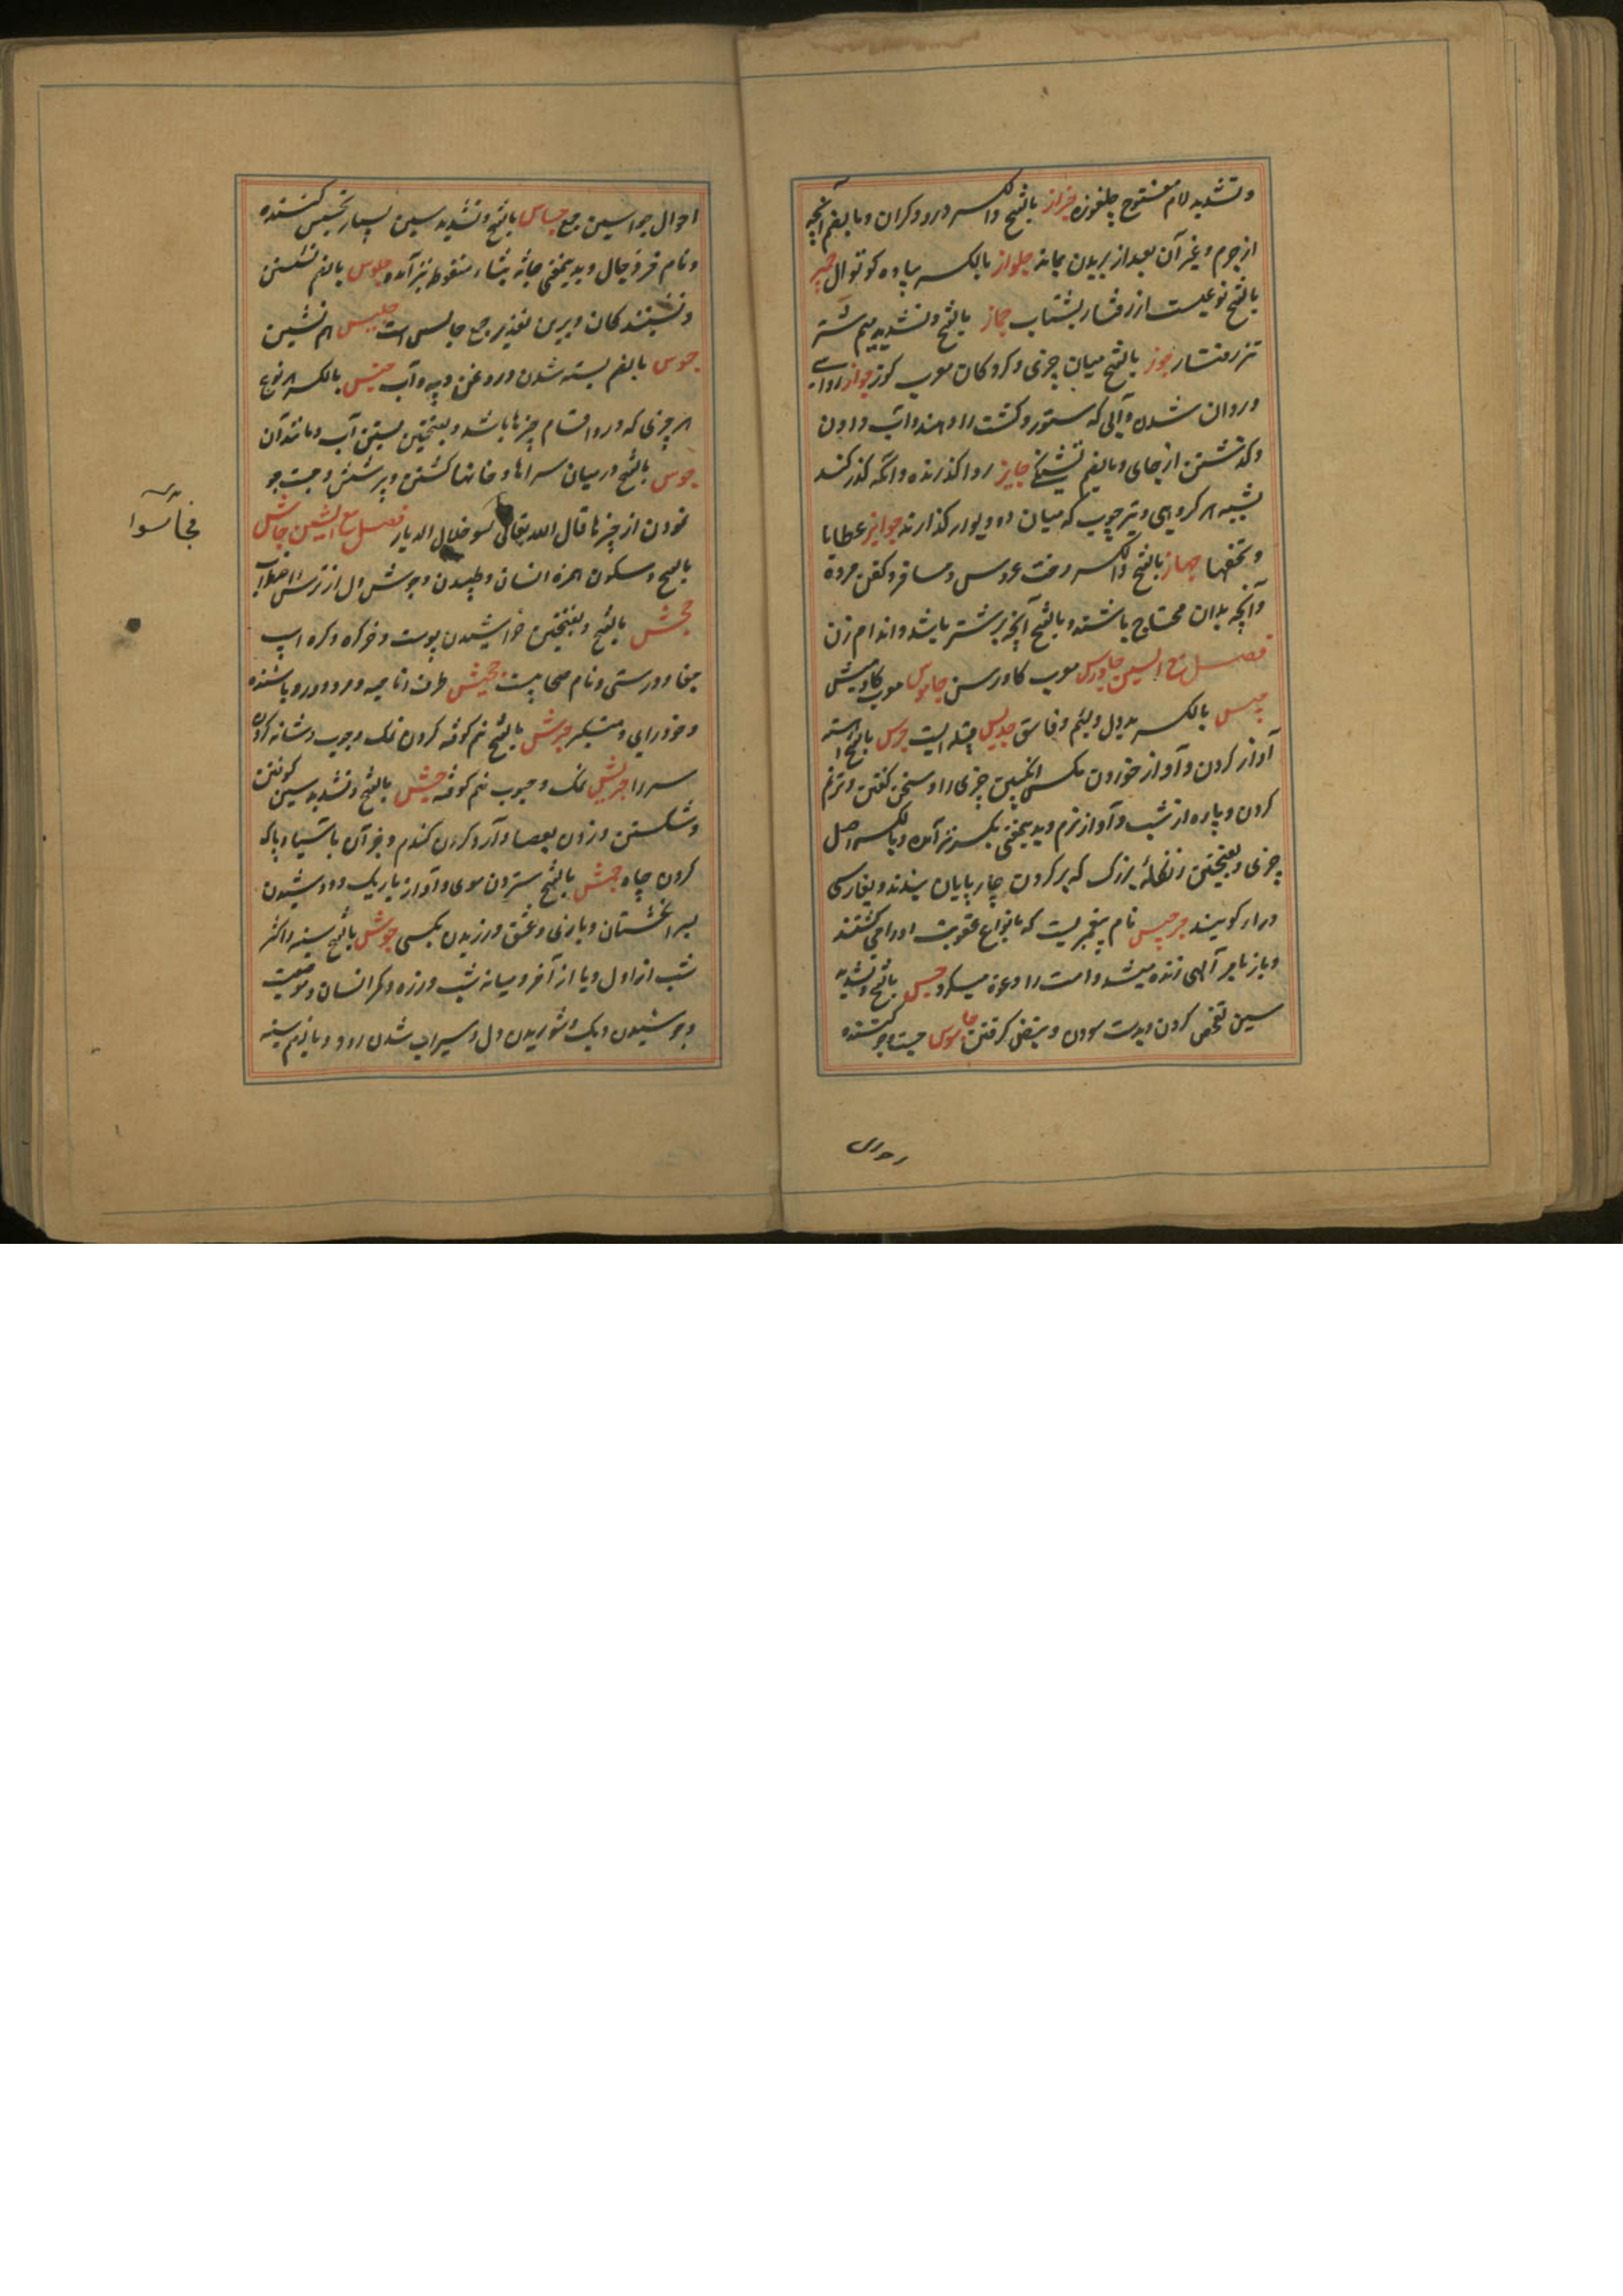 وتشدید لام مفتوح چلغوزه جزاز بالفتح والکسر درودکران وبالضم آنچه
از چرم وغیر آن بعد از بریدن بماند جلواز بالکسر پیاده کوتوال جمز
بالفتح نوعیست از رفتار بشتاب جماز بالفتح وتشدید میم شتر
تیز رفتار جوز بالفتح میان چیزی وکردکان معرب کوز جواز روائے
وروان شدن وآبی که ستور وکشت را دهند وآب دادن
وکذشتن از جای وبالضم تشنکے جایز روا کذرنده وآنکه کذر کند
بشب هر کروهی وتیر چوب که میان دو دیوار کذارند جوایز عطایا
وتحفها جهاز بالفتح والکسر رخت عروس ومسافر وکفن مرده
وآنچه بدان محتاج باشند وبالفتح آنچه بر شتر باشد واندام زن
فصل مع السین جاورس معرب کاورس جاموس معرب کاومیش
جبس بالکسر بددل ولئیم وفاسق جدیس قبیله ایست جرس بالفتح آهسته
آواز کردن وآواز خوردن مکس انکبین چیزی را وسخن کفتن وترنم
کردن وپاره از شب وآواز نرم وبدینمعنی بکسر نیز آمده وبالکسر اصل
چیزی وبفتحتین زنکلهٔ بزرک که بر کردن چارپایان بندند وبفارسی
درای کویند جرجیس نام پیغمبریست که بانواع عقوبت او را می کشتند
وباز بامر آلهی زنده میشد وامت را دعوة میکرد جس بالفتح وتشدید
سین تفحص کردن وبدست سودن ونبض کرفتن جاسوس جست وجو کننده
احوال جواسیس جمع جساس بالفتح وتشدید سین بسیار تجسس کننده
ونام خر دجال وبدینمعنی جاثه بثاء منقوط نیز آمده جلوس بالضم نشستن
ونشینندکان وبرین تقدیر جمع جالس است جلیس هم نشین
جموس بالضم بسته شدن وروغن وپیه وآب جنس بالکسر هر نوع
هر چیزی که درو اقسام چیزها باشد وبفتحتین بستن آب ومانند آن
جوس بالفتح در میان سراها وخانها کشتن وپرسش وجست جو
نمودن از چیزها قال الله تعالی فجاسوا خلال الدیار فصل مع الشین جاش
بالفتح وسکون همزه انسان وطپیدن وجوش دل از ترس واضطراب
جحش بالفتح وبفتحتین خراشیدن پوست وخرکره وکره اسپ
جفا ودرستی ونام صحابیست جحیش طرف وناحیه ومرد دور رو باشنده
وخودرای ومتبکر جرش بالفتح نیم کوفته کردن نمک وحبوب وشانه کردن
سر را جریش نمک وحبوب نیم کوفته جش بالفتح وتشدید سین کوفتن
وشکستن وزدن بعصا وآرد کردن کندم وجز آن باسیا وپاک
کردن چاه جمش بالفتح ستردن موی وآواز باریک ودوشیدن
بسر انکشتان وبازی وعشق ورزیدن بکسی جوش بالفتح سینه واکثر
شب از اول ویا از آخر ومیانه شب وزره وکمر انسان وموضعیست
وجوشیدن دیک وشوریدن دل وسیراب شدن رود وبالضم سینه
فجاسوا